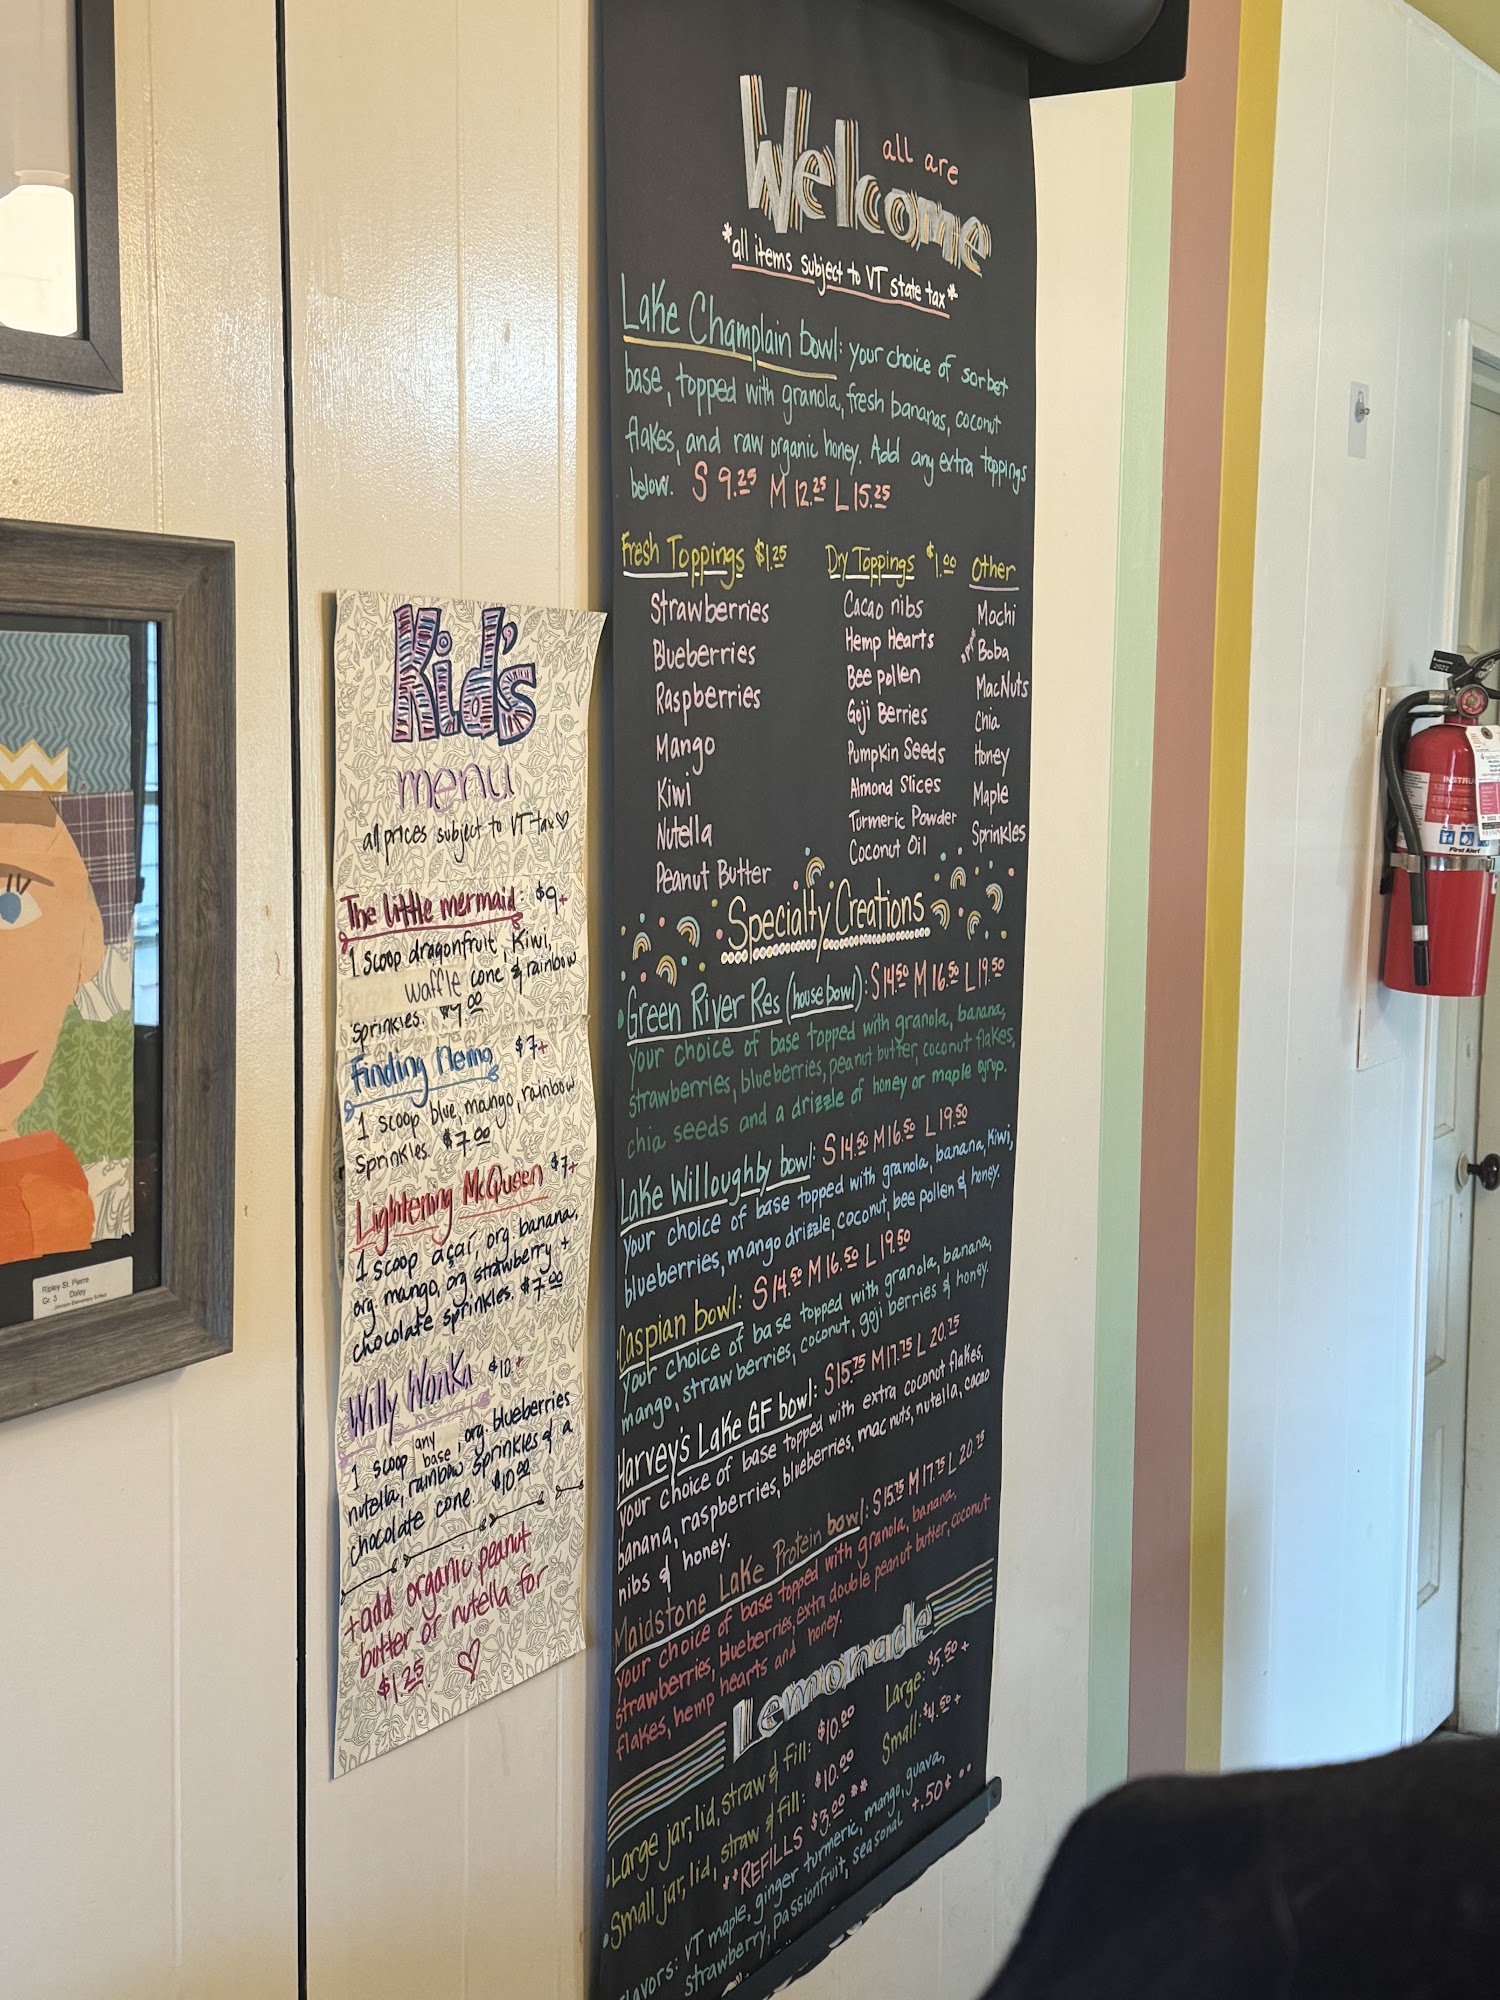 Kid's
menu
all prices subject to VT tax
The little mermaid: $9+
1 scoop dragonfruit, Kiwi,
waffle cone & rainbow
sprinkles. $9.00
Finding Nemo $7+
1 scoop blue, mango, rainbow
sprinkles. $7.00
Lightening McQueen $7+
1 scoop açaí, org banana,
org mango, org strawberry +
chocolate sprinkles. $7.00
Willy Wonka $10+
1 scoop any base, org. blueberries
nutella, rainbow sprinkles & a
chocolate cone. $10.00
+add organic peanut
butter or nutella for
$1.25
all are
Welcome
*all items subject to VT state tax*
Lake Champlain bowl: your choice of sorbet
base, topped with granola, fresh bananas, coconut
flakes, and raw organic honey. Add any extra toppings
below. S 9.25 M 12.25 L 15.25
Fresh Toppings $1.25
Strawberries
Blueberries
Raspberries
Mango
Kiwi
Nutella
Peanut Butter
Dry Toppings $1.00
Cacao nibs
Hemp Hearts
Bee pollen
Goji Berries
Pumpkin Seeds
Almond Slices
Turmeric Powder
Coconut Oil
Other
Mochi
Boba
MacNuts
Chia
Honey
Maple
Sprinkles
Specialty Creations
Green River Res (house bowl): S 14.50 M 16.50 L 19.50
your choice of base topped with granola, banana,
strawberries, blueberries, peanut butter, coconut flakes,
chia seeds and a drizzle of honey or maple syrup.
Lake Willoughby bowl: S 14.50 M 16.50 L 19.50
your choice of base topped with granola, banana, kiwi,
blueberries, mango drizzle, coconut, bee pollen & honey.
Caspian bowl: S 14.50 M 16.50 L 19.50
your choice of base topped with granola, banana,
mango, strawberries, coconut, goji berries & honey.
Harvey's Lake GF bowl: S 15.75 M 17.75 L 20.75
your choice of base topped with extra coconut flakes,
banana, raspberries, blueberries, mac nuts, nutella, cacao
nibs & honey.
Maidstone Lake Protein bowl: S 15.75 M 17.75 L 20.75
your choice of base topped with granola, banana,
strawberries, blueberries, extra double peanut butter, coconut
flakes, hemp hearts and honey.
lemonade
•Large jar, lid, straw & fill: $10.00 Large: $5.50+
•Small jar, lid, straw & fill: $10.00 Small: $4.50+
**REFILLS $3.00**
flavors: VT maple, ginger turmeric, mango, guava,
strawberry, passionfruit, seasonal +.50¢
Ripley St. Pierre
Gr. 3 Daley
2022
INSTRU
First Alert